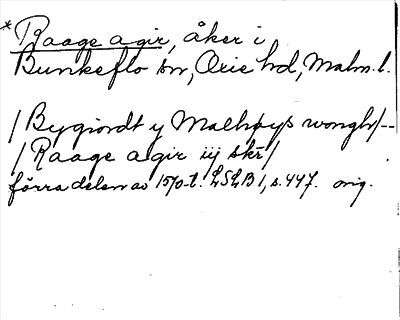 * Raage agir, åker i
Bunkeflo sn, Oxie hd, Malm. l.
/ Bygiordt y Malhøys wongh/--
/ Raage agir iij skr/
förra delen av 1570-t. LSLB 1, s. 447. orig.